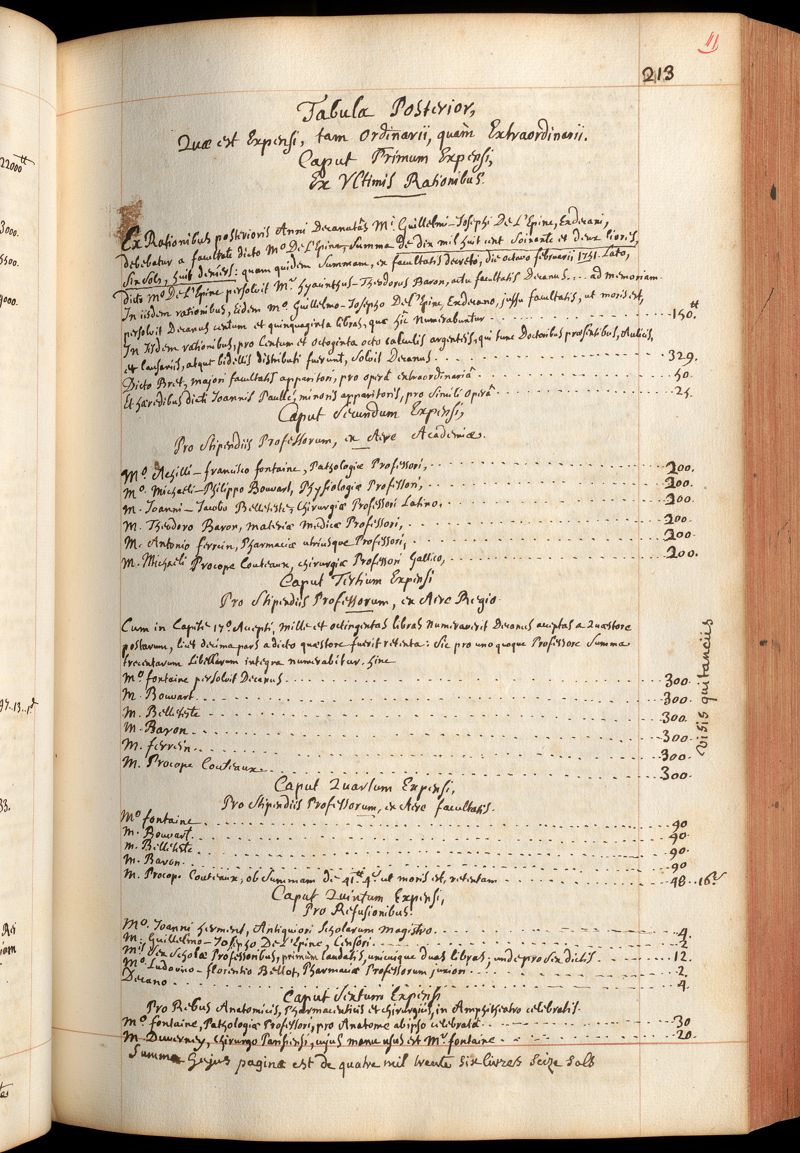 11
213
Tabula Posterior,
Quæ est Expensi, tam Ordinarii, quàm Extraordinarii.
Caput Primum Expensi,
Ex Ultimis Rationibus.
Ex Rationibus posterioris Anni Decanatûs Mi. Guillelmi-Josephi De L'Epine, Exdecani,
debebatur a facultate dicto Mo. De L'Epine, Summa De dix mil huit cent Soixante et deux livres,
Six Sols, huit deniers: quam quidem Summam, ex facultatis decreto, die octavo februarii 1751. Lato,
dicto Mo. De L'Epine persolvit Mr. hyacinthus-Theodorus Baron, actu facultatis Decanus... ad memoriam.
In iisdem rationibus, Eidem Mo. Guillelmo-Josepho De L'Epine, Exdecano, jussu facultatis, ut moris est,
persolvit Decanus centum et quinquaginta libras, quæ hîc numerabuntur 150.tt
In Iisdem rationibus, pro Centum et octoginta octo calculis argenteis, qui tunc Doctoribus præsentibus, Aulicis,
et Causariis, atque bidellis distributi fuerunt, Solvit Decanus 329.
Dicto Bret, majori facultatis apparitori, pro operâ extraordinariâ 50.
Et hæredibus dicti Joannis Paullé, minoris apparitoris, pro Simili Operâ 25.
Caput Secundum Expensi,
Pro Stipendiis Professorum, ex Aere Academiæ.
Mo. Achilli-francisco fontaine, Pathologiæ Professori, 200.
Mo. Michaeli-Philippo Bouvart, Physiologiæ Professori, 200.
M. Joanni-Jacobo Belleteste, Chirurgiæ Professori Latino, 200.
M. Theodoro Baron, materiæ medicæ Professori, 200.
M. Antonio ferrein, Pharmaciæ utriusque Professori, 200.
M. Michaeli Procope Couteaux, chirurgiæ Professori Gallico, 200.
Caput Tertium Expensi
Pro Stipendiis Professorum, ex Aere Regio
Cum in Capite 17o. Accepti, mille et octingentas libras numeraverit Decanus acceptas a Quæstore
postarum, licet decima pars a dicto quæstore fuerit retenta: Sic pro uno quoque Professore Summa
trecentarum Libellarum integra numerabitur. hinc
Mo. fontaine persolvit Decanus 300.
M. Bouvart 300.
M. Belleteste 300.
M. Baron 300.
M. ferrein 300.
M. Procope Couteaux 300.
visis quitanciis
Caput Quartum Expensi,
Pro Stipendiis Professorum, ex Aere facultatis.
Mo fontaine 90
M. Bouvart 90.
M. Belleteste 90.
M. Baron 90
M. Procope Couteaux, ob Summam de 41tt. 4s. ut moris est, retentam 48..16s.
Caput Quintum Expensi,
Pro Refusionibus.
Mo. Joanni herment, Antiquiori Scholarum Magistro 4.
M. Guillelmo-Josepho De L'Epine, Censori 2.
Mis. Sex Scholæ Professoribus, primùm laudatis, unicuique duas libras, unde pro Sex dictis 12.
Mo. Ludovico-florentio Bellot, Pharmaciæ Professorum juniori 2.
Decano 4.
Caput Sextum Expensi
Pro Rebus Anatomicis, Pharmaceuticis et chirurgicis, in Amphitheatro celebratis.
Mo. fontaine, Pathologiæ Professori, pro Anatome ab ipso celebrata 30
M. Duverney, Chirurgo Parisiensi, cujus manu usus est Mr. fontaine 20.
Summa hujus paginæ est de quatre mil trente six livres seize sols